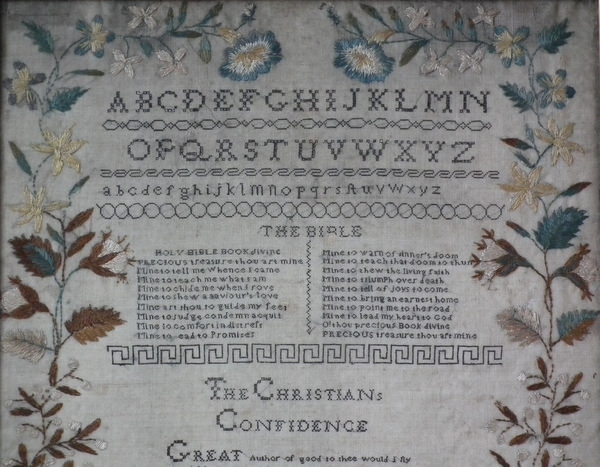 ABCDEFGHIJKLMN
OPQRSTUVWXYZ
abcdefghijklmnopqrstuvwxyz
THE BIBLE
HOLY BIBLE BOOK divine
PRECIOUS treasure thou art mine
Mine to tell me whence I came
Mine to teach me what I am
Mine to chide me when I rove
Mine to shew a saviour's love
Mine art thou to guide my feet
Mine to judge condemn acquit
Mine to comfort in distress
Mine to lead to Promises
Mine to warn of sinner's doom
Mine to teach that doom to shun
Mine to shew the living faith
Mine to triumph over death
Mine to tell of joys to come
Mine to bring an earnest home
Mine to point me to the road
Mine to lead my heart to God
O! thou precious Book divine
PRECIOUS treasure thou art mine
THE CHRISTIANs
CONFIDENCE
GREAT Author of good to thee would I fly